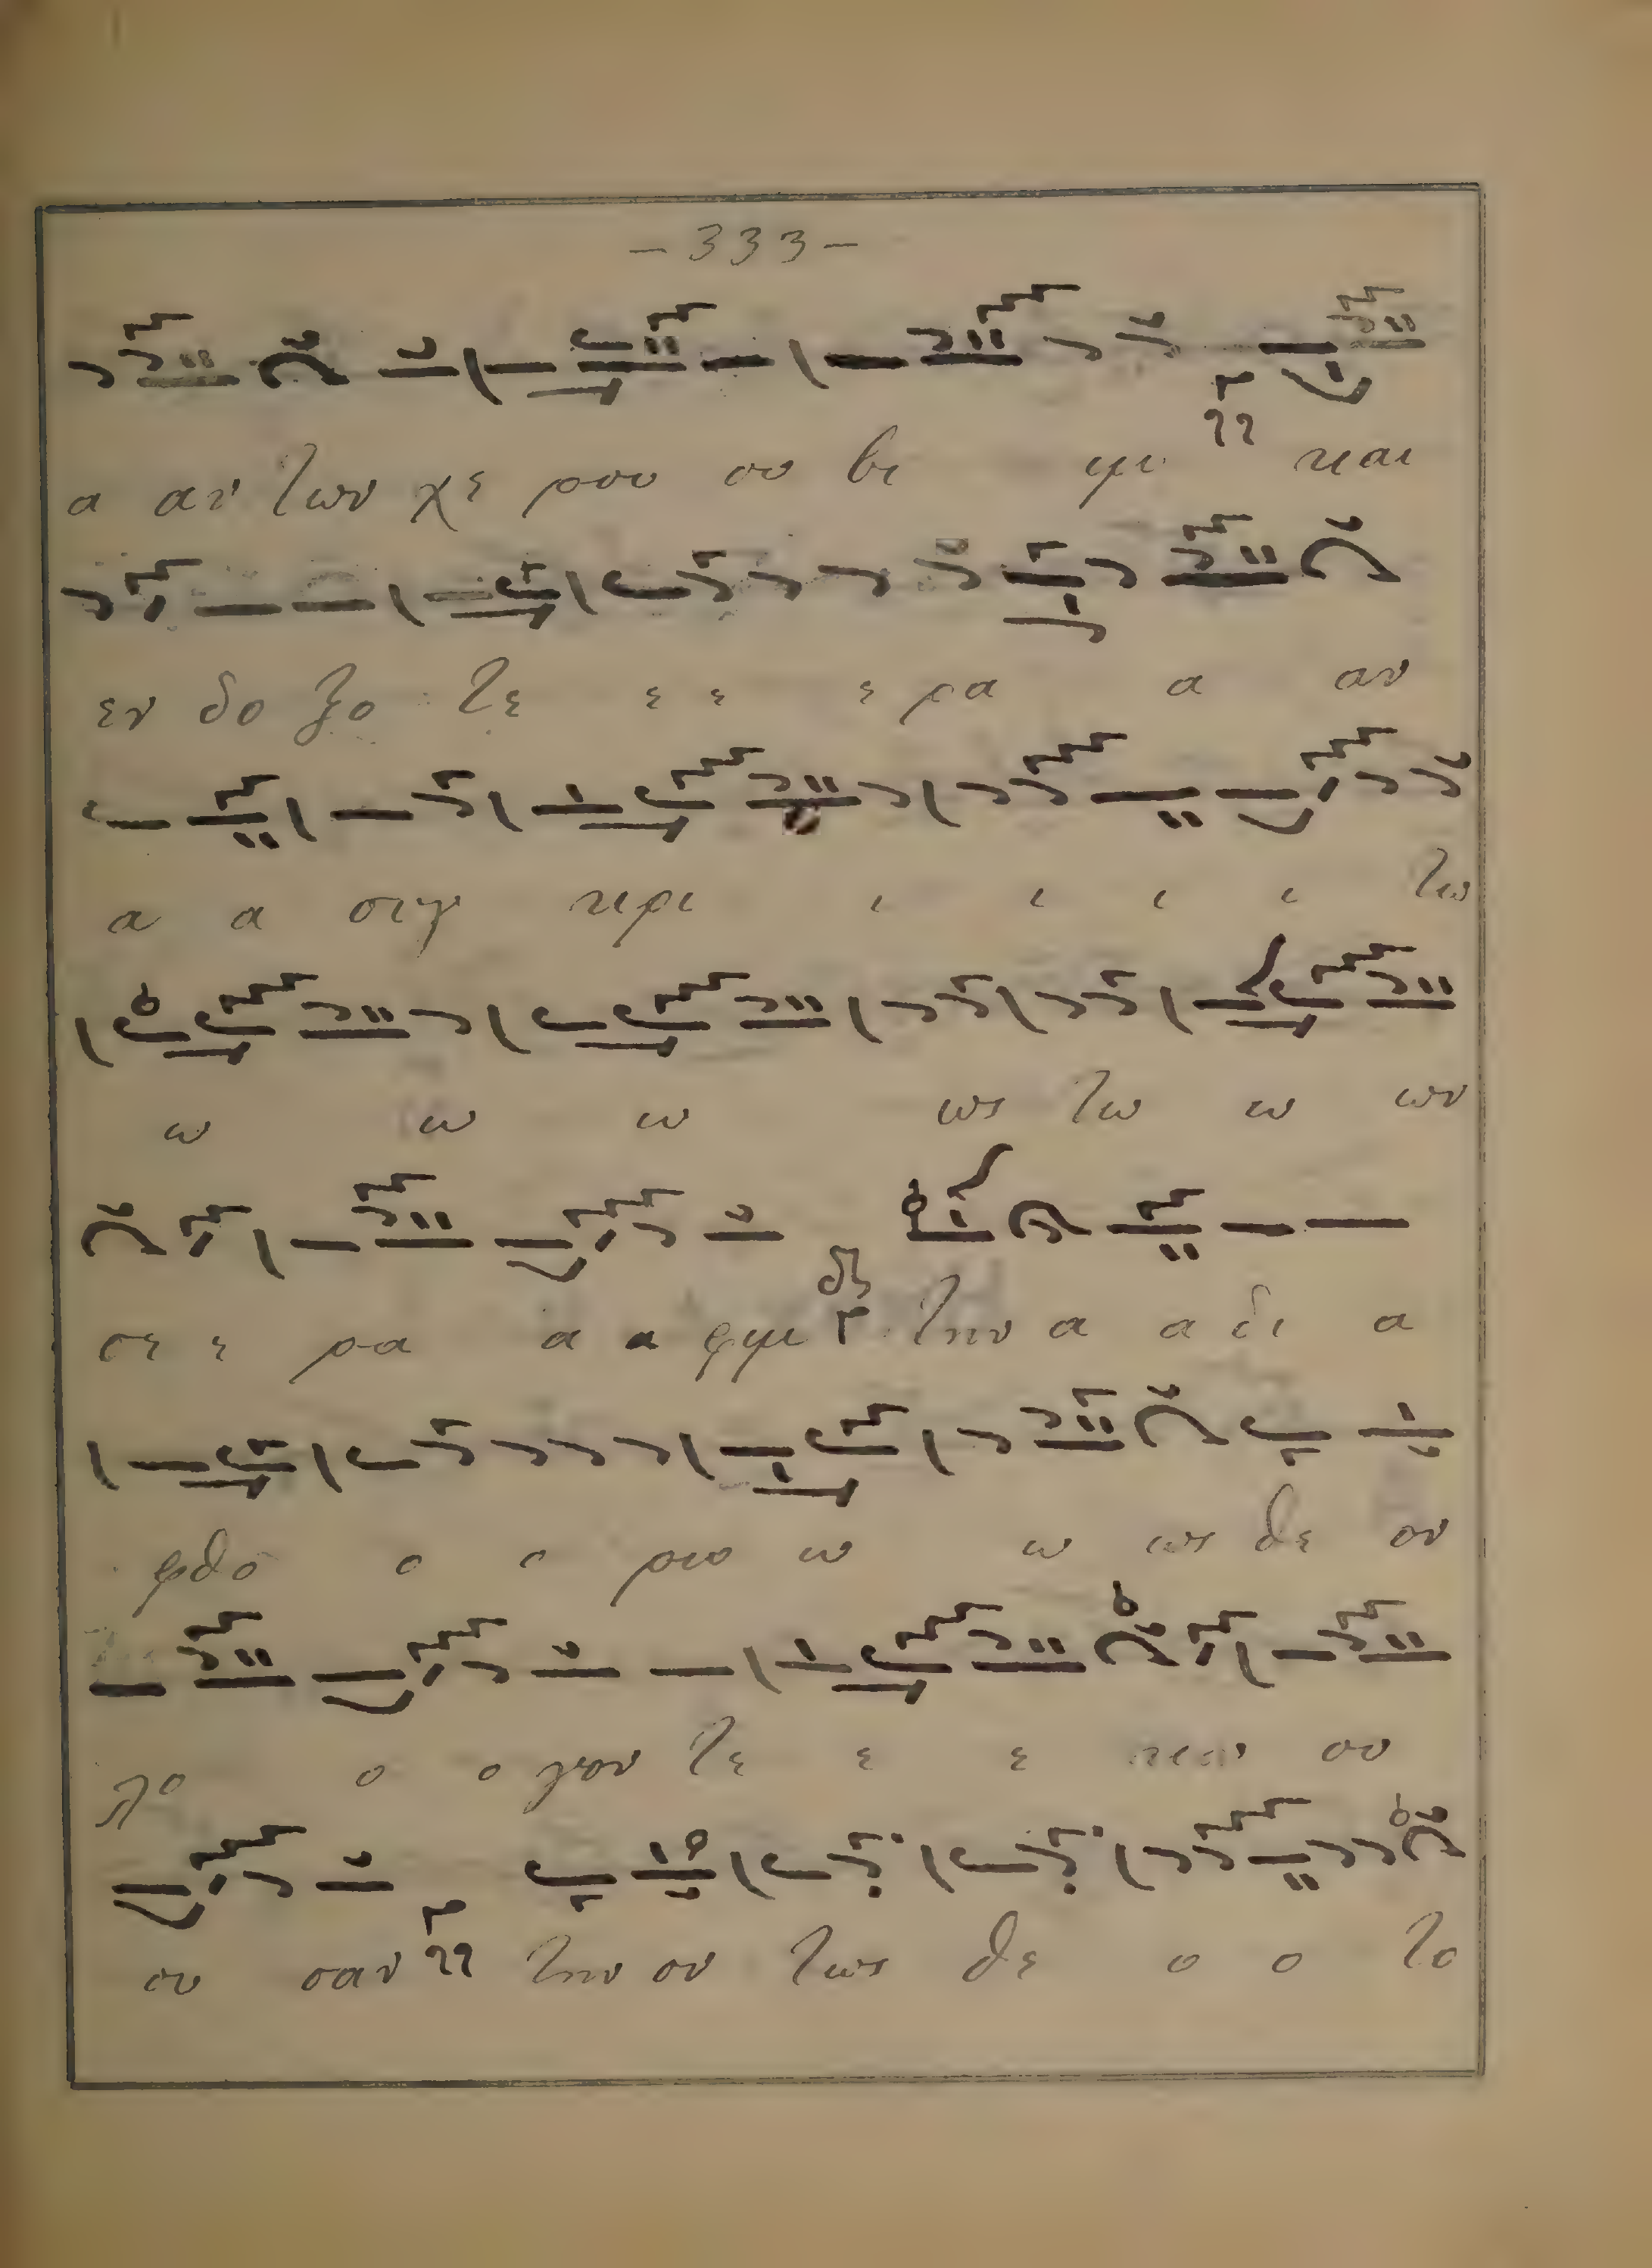 - 333 -
α αν των χε ρου ου βι μ και
εν δο ξο τε ε ε ε ρα α αν
α α συγ κρι ι ι ι ι τω
ω ω ω ως τω ω ων
σε ε ρα α α φιμ την α α δι α
φθο ο ο ρω ω ω ως θε ον
λο ο ο γον τε ε ε ου
ου σαν την ον τως θε ο ο το